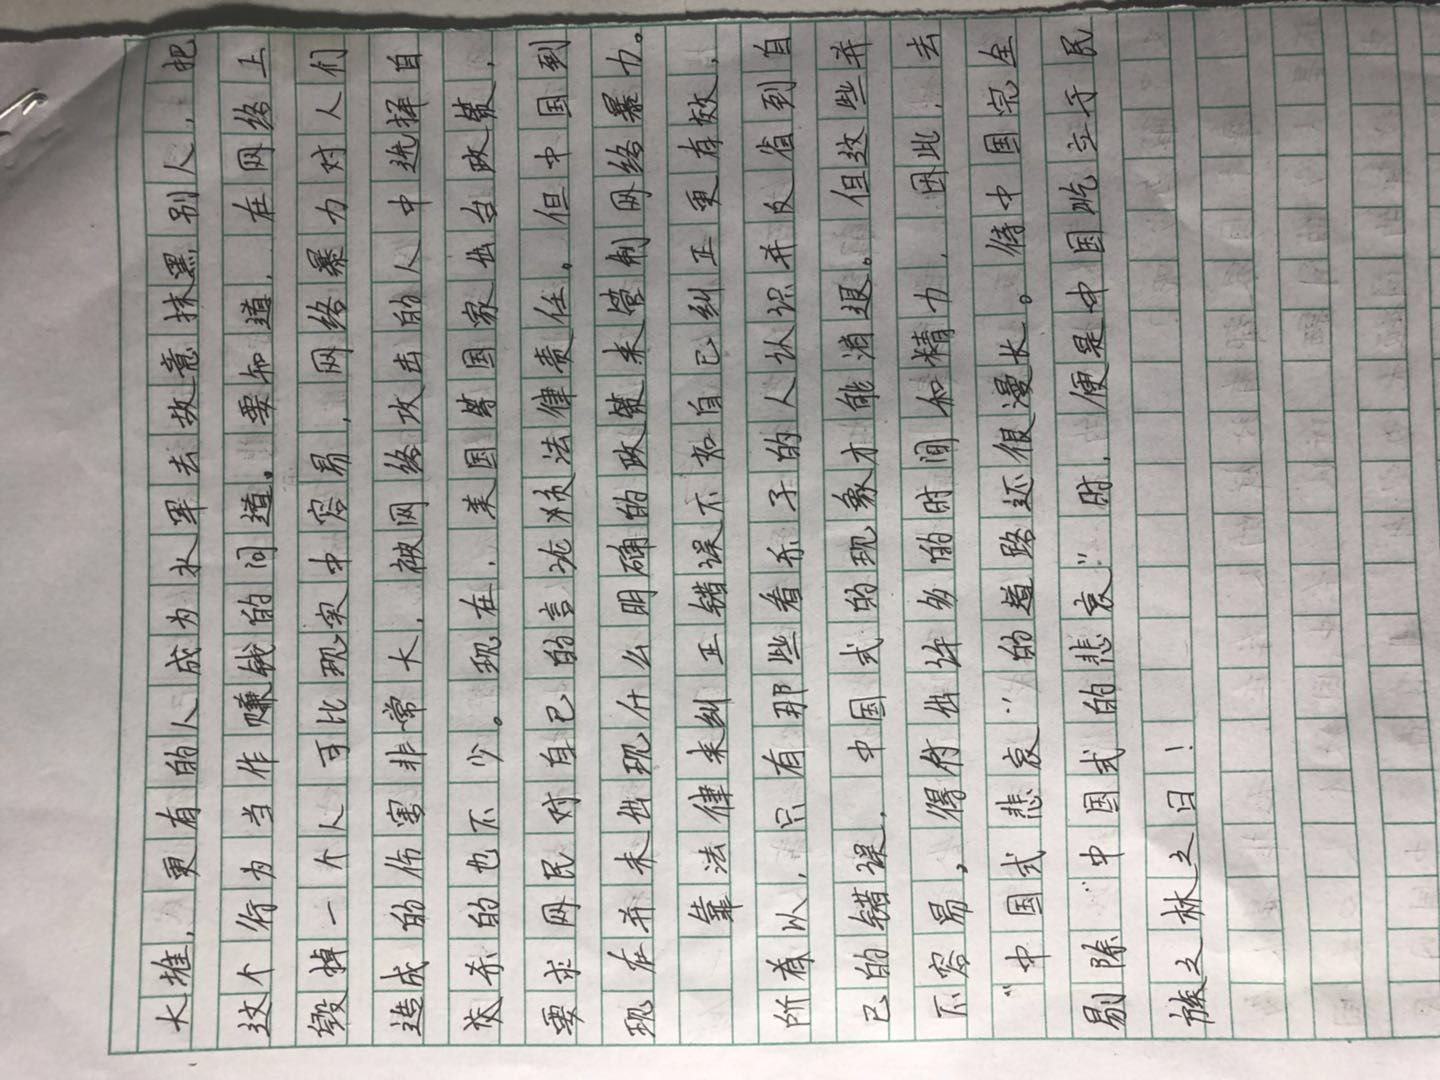 大推，更有的人成为水军去故意抹黑别人，把
这个行为当作赚钱的问道。要知道，在网络上
毁掉一个人可比现实中容易，网络暴力对人们
造成的伤害非常大，被网络攻击的人中选择自
杀的也不少。现在，美国等国家出台政策，
要求网民对自己的言论须法律责任。但中国到
现在并未出现什么明确的政策来管制网络暴力。
靠法律来纠正错误不如自己纠正更有效，
所以，只有那些看客子的人认识并反省到自
己的错误，中国式的现象才能消退。但这些并
不容易，得付出许多的时间和精力，因此，去
“中国式悲哀”的道路还很漫长。待中国完全
剔除“中国式的悲哀”时，便是中国屹立于民
族之林之日！